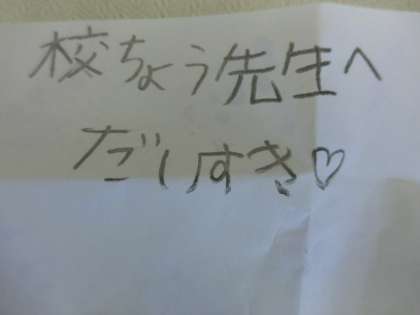 校ちょう先生へ
だいすき♡